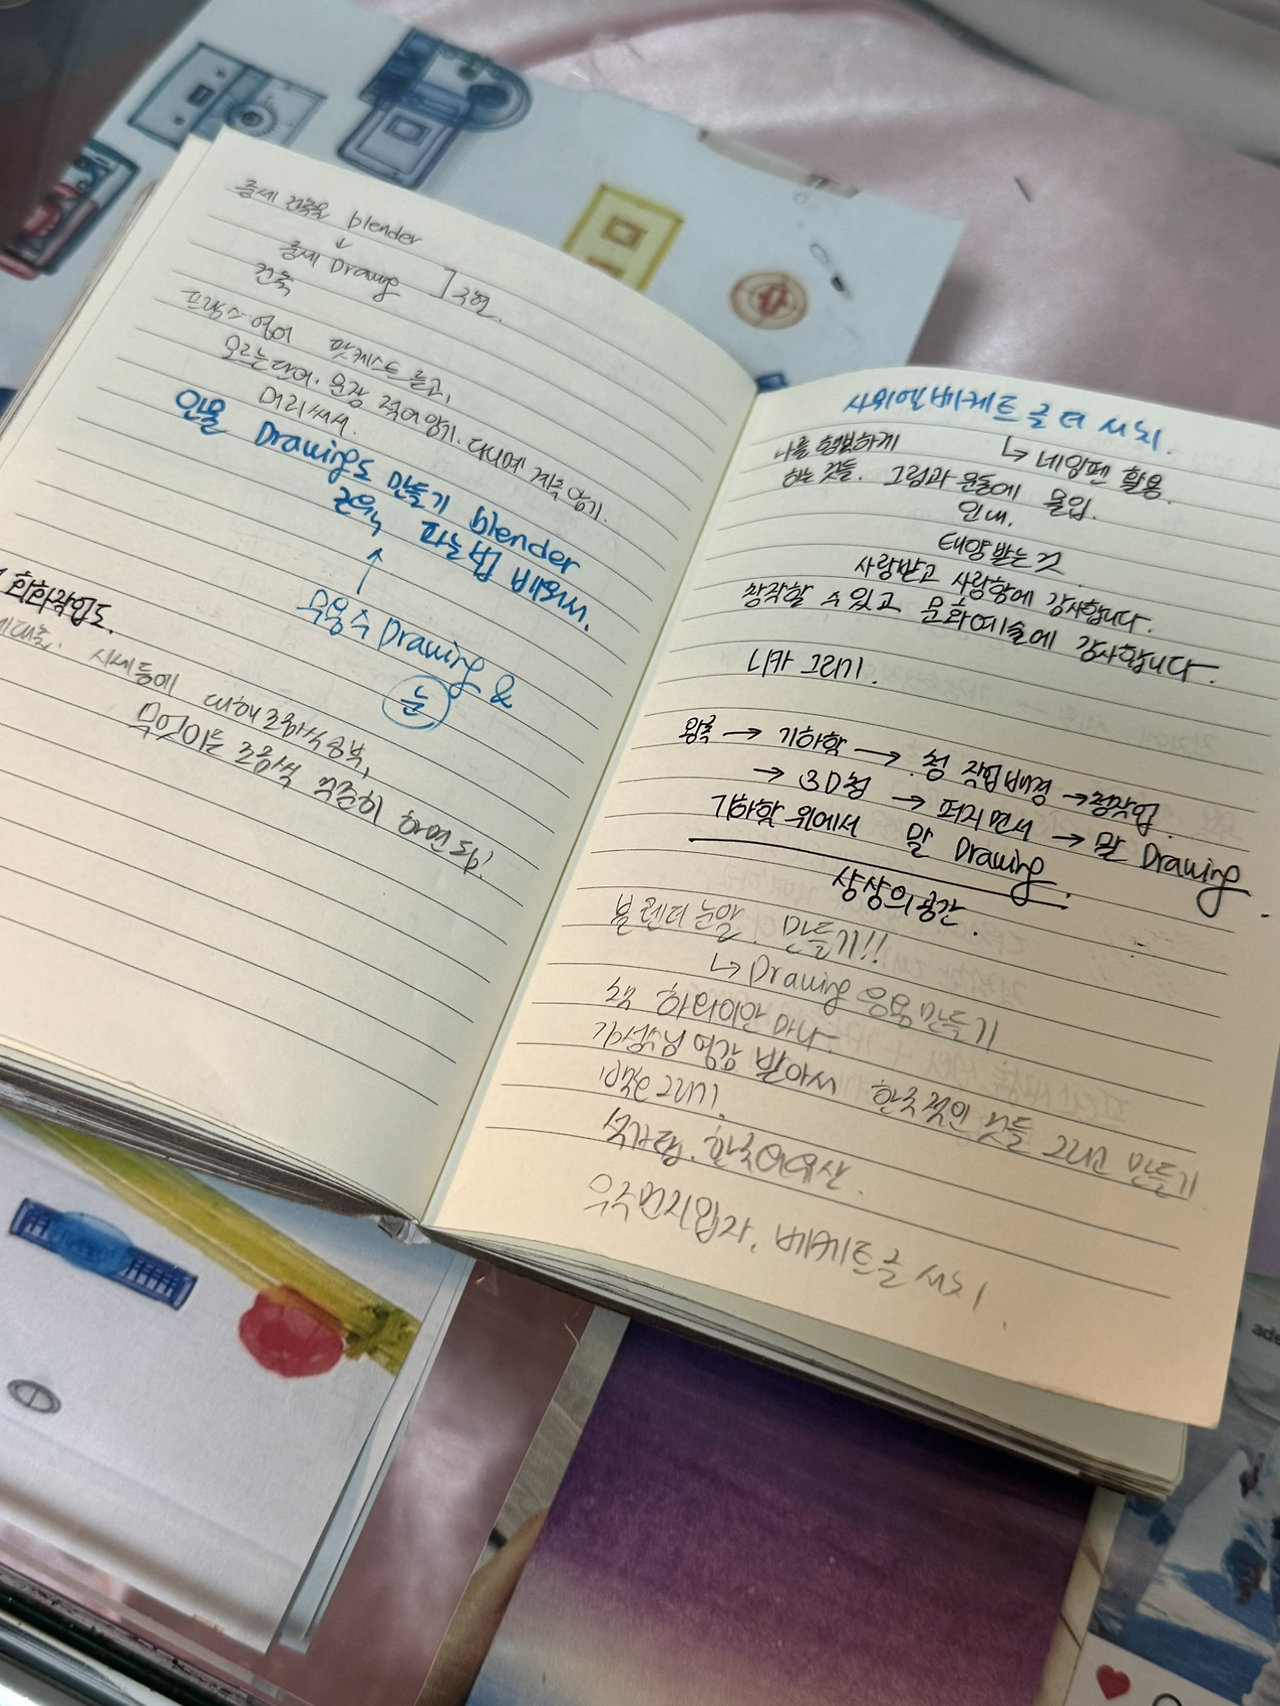 중세 건축을 blender
↓
중세 Drawing ] 구현.
건축
프랑스 영어 팟캐스트 듣고,
모르는 단어. 문장 적어 암기. 다니며 계속 암기.
머리써서.
인물 Drawing도 만들기 blender
근육 파는법 배워서.
↑
무용수 Drawing &
눈
회화작업도.
시세등에 대해 조금식 공부,
무엇이든 조금씩 꾸준히 하면 돼!
사뮈엘 베케트 글 더 쓰기.
↳ 네임펜 활용.
나를 행복하게
하는 것들. 그림과 운동에 몰입.
인내.
태양 받는 것.
사랑받고 사랑함에 감사합니다.
창작할 수 있고 문화예술에 감사합니다.
니카 그리기.
왕국 → 기하학 → 청 작업 배경 → 청작업.
→ 3D청 → 퍼지면서 → 말 Drawing
기하학 위에서 말 Drawing.
상상의 공간.
블렌더 눈알. 만들기!!
↳ Drawing 응용 만들기
하타이안 마나
영감 받아서 한국적인 것들 그리고 만들기
그리기.
석가탑. 한국의 유산.
우주먼지입자. 베케트 글 쓰기